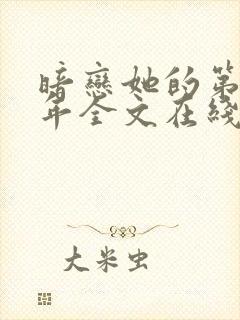 暗戀她的第
年全文在綫
大米虫